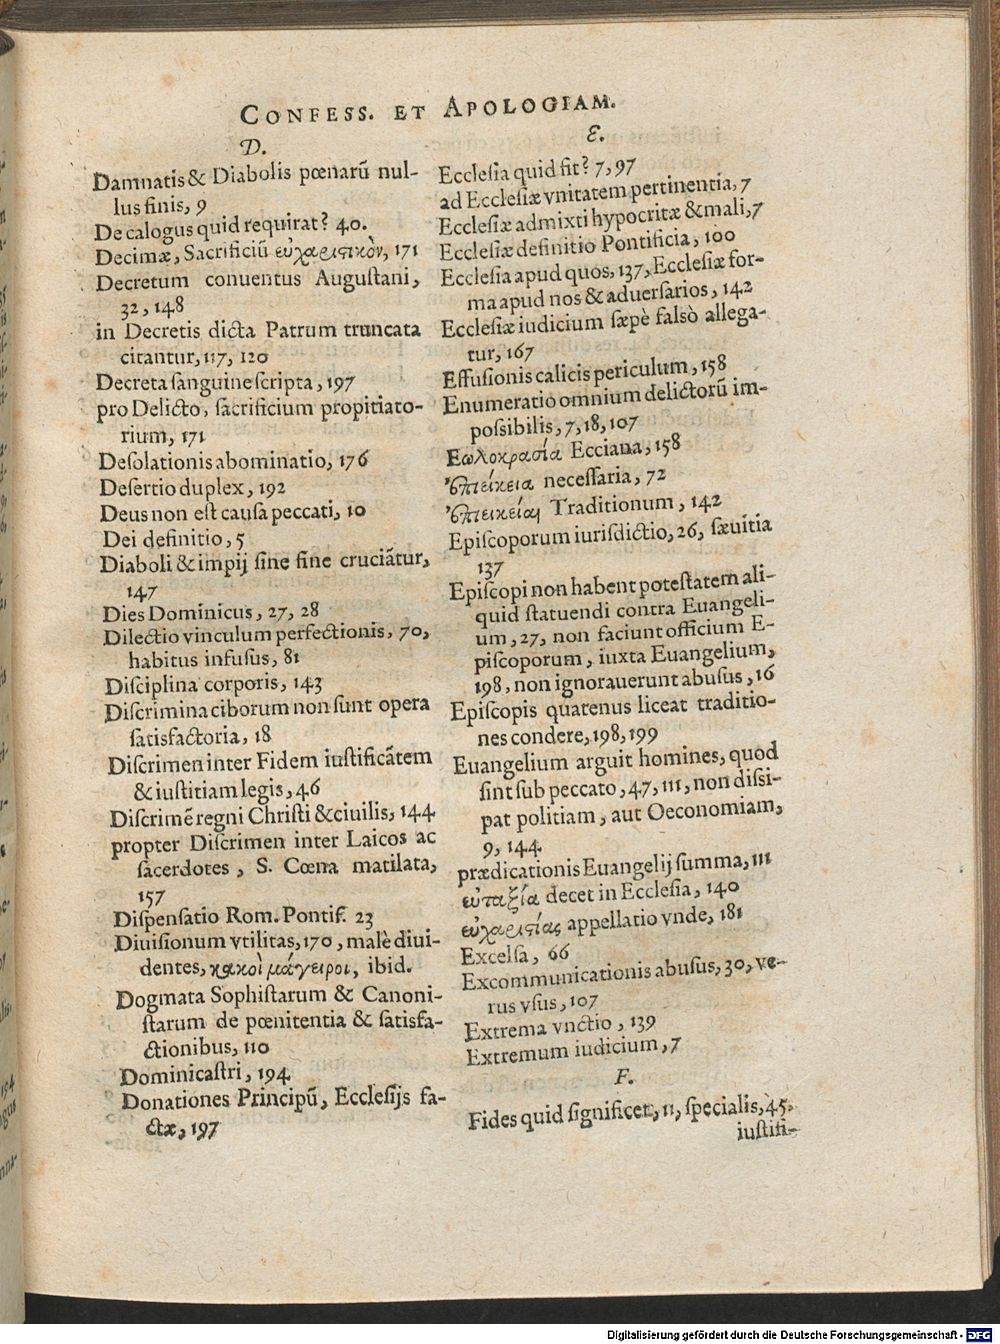 CONFESS. ET APOLOGIAM.
D.
Damnatis & Diabolis pœnarũ nul-
lus finis, 9
Decalogus quid requirat? 40.
Decimæ, Sacrificiũ εὐχαριστικὸν, 171
Decretum conuentus Augustani,
32, 148
in Decretis dicta Patrum truncata
citantur, 117, 120
Decreta sanguine scripta, 197
pro Delicto, sacrificium propitiato-
rium, 171
Desolationis abominatio, 176
Desertio duplex, 192
Deus non est causa peccati, 10
Dei definitio, 5
Diaboli & impij sine fine cruciãtur,
147
Dies Dominicus, 27, 28
Dilectio vinculum perfectionis, 70,
habitus infusus, 81
Disciplina corporis, 143
Discrimina ciborum non sunt opera
satisfactoria, 18
Discrimen inter Fidem iustificãtem
& iustitiam legis, 46
Discrimẽ regni Christi & ciuilis, 144
propter Discrimen inter Laicos ac
sacerdotes, S. Cœna matilata,
157
Dispensatio Rom. Pontif. 23
Diuisionum vtilitas, 170, malè diui-
dentes, κακοὶ μάγειροι, ibid.
Dogmata Sophistarum & Canoni-
starum de pœnitentia & satisfa-
ctionibus, 110
Dominicastri, 194
Donationes Principũ, Ecclesijs fa-
ctæ, 197
E.
Ecclesia quid sit? 7, 97
ad Ecclesiæ vnitatem pertinentia, 7
Ecclesiæ admixti hypocritæ & mali, 7
Ecclesiæ definitio Pontificia, 100
Ecclesia apud quos, 137, Ecclesiæ for-
ma apud nos & aduersarios, 142
Ecclesiæ iudicium sæpè falsò allega-
tur, 167
Effusionis calicis periculum, 158
Enumeratio omnium delictorũ im-
possibilis, 7, 18, 107
Εωλοκρασία Ecciana, 158
Ἐπιείκεια necessaria, 72
Ἐπιεικείαι Traditionum, 142
Episcoporum iurisdictio, 26, sæuitia
137
Episcopi non habent potestatem ali-
quid statuendi contra Euangeli-
um, 27, non faciunt officium E-
piscoporum, iuxta Euangelium,
198, non ignorauerunt abusus, 16
Episcopis quatenus liceat traditio-
nes condere, 198, 199
Euangelium arguit homines, quod
sint sub peccato, 47, 111, non dissi-
pat politiam, aut Oeconomiam,
9, 144
prædicationis Euangelij summa, 111
εὐταξία decet in Ecclesia, 140
εὐχαριστίας appellatio vnde, 181
Excelsa, 66
Excommunicationis abusus, 30, ve-
rus vsus, 107
Extrema vnctio, 139
Extremum iudicium, 7
F.
Fides quid significet, 11, specialis, 45,
iustifi-
Digitalisierung gefördert durch die Deutsche Forschungsgemeinschaft - DFG